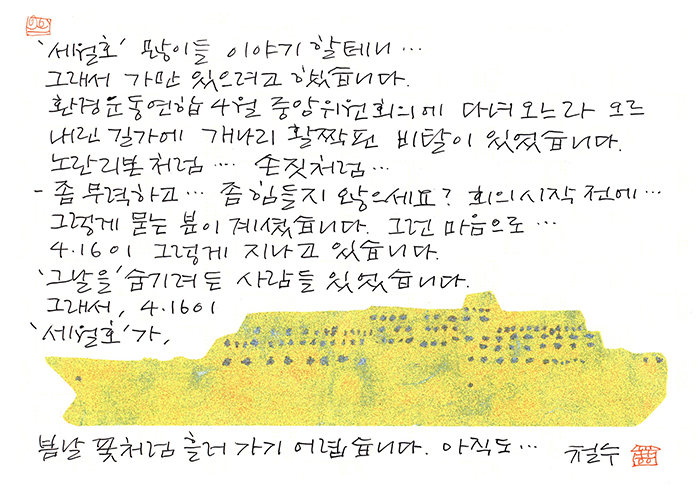 '세월호' 많이들 이야기 할테니…
그래서 가만 있으려고 했습니다.
환경운동연합 4월 중앙위원회의에 다녀오느라 오르
내린 길가에 개나리 활짝핀 비탈이 있었습니다.
노란리본처럼… 손짓처럼…
- 좀 무력하고… 좀 힘들지 않으세요? 회의시작 전에…
그렇게 묻는 분이 계셨습니다. 그런 마음으로…
4.16이 그렇게 지나고 있습니다.
'그날을' 숨기려는 사람들 있었습니다.
그래서, 4.16이
'세월호'가,
봄날 꽃처럼 흘러가기 어렵습니다. 아직도…
철수